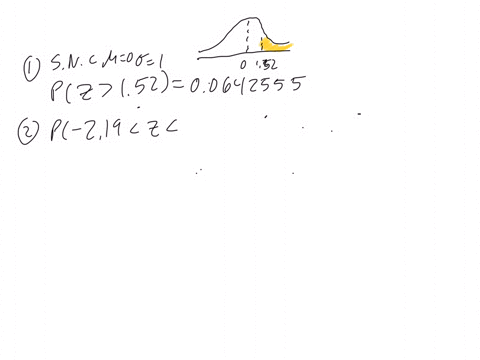 0 1.52
① S.N.C μ=0 σ=1
P(Z > 1.52) = 0.0642555
② P(-2.19 < Z <